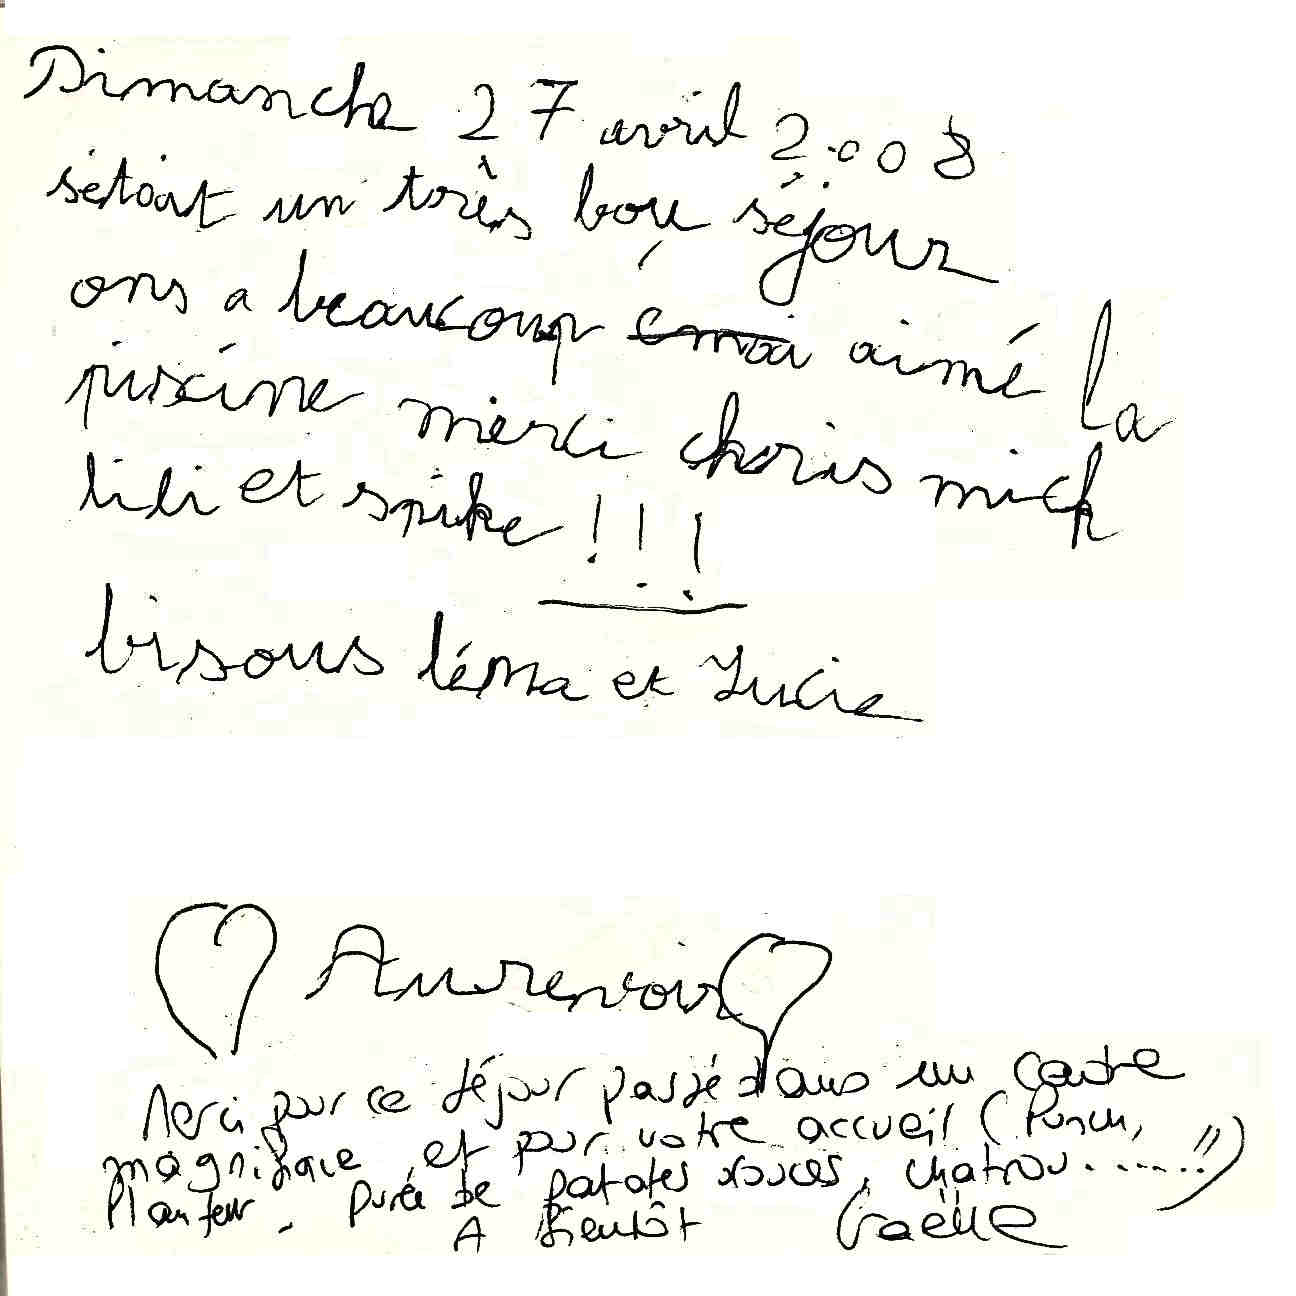 Dimanche 27 avril 2008
sétait un très bon séjour
ons a beaucoup aimé la
piscine merci choris mick
lili et spike !!!
bisous léna et Lucie
Au revoir
Merci pour ce séjour passé dans un cadre
magnifique, et pour votre accueil (Punch,
Planteur, purée de patates douces, chatrou......!!)
A Bientôt Gaëlle